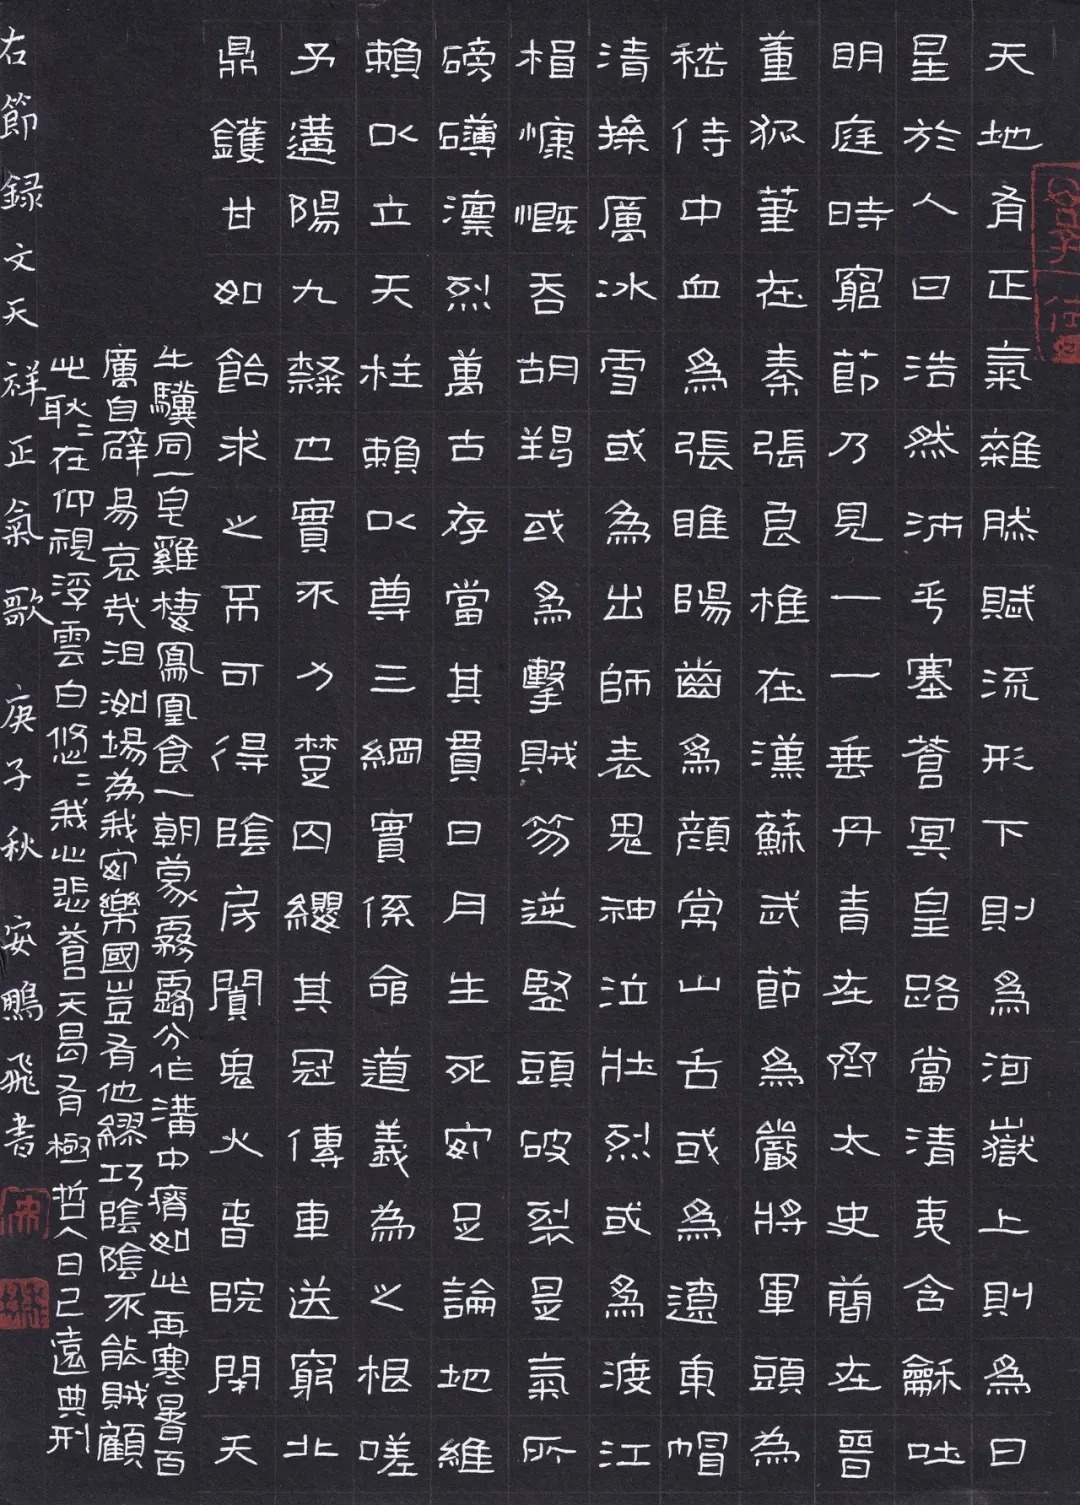 天地有正氣雜然賦流形下則為河嶽上則為日
星於人曰浩然沛乎塞蒼冥皇路當清夷含龢吐
明庭時窮節乃見一一垂丹青在齊太史簡在晉
董狐筆在秦張良椎在漢蘇武節為嚴將軍頭為
嵇侍中血為張睢陽齒為顏常山舌或為遼東帽
清操厲冰雪或為出師表鬼神泣壯烈或為渡江
楫慷慨吞胡羯或為擊賊笏逆豎頭破裂是氣所
磅礴凜烈萬古存當其貫日月生死安足論地維
賴以立天柱賴以尊三綱實係命道義為之根嗟
予遘陽九隸也實不力楚囚纓其冠傳車送窮北
鼎鑊甘如飴求之不可得陰房闃鬼火春院閉天
牛驥同一皂雞棲鳳凰食一朝蒙霧露分作溝中瘠如此再寒暑百
厲自辟易哀哉沮洳場為我安樂國豈有他繆巧陰陰不能賊顧
此耿〻在仰視浮雲白悠〻我心悲蒼天曷有極哲人日已遠典刑
右節録文天祥正氣歌 庚子秋 安鵬飛書